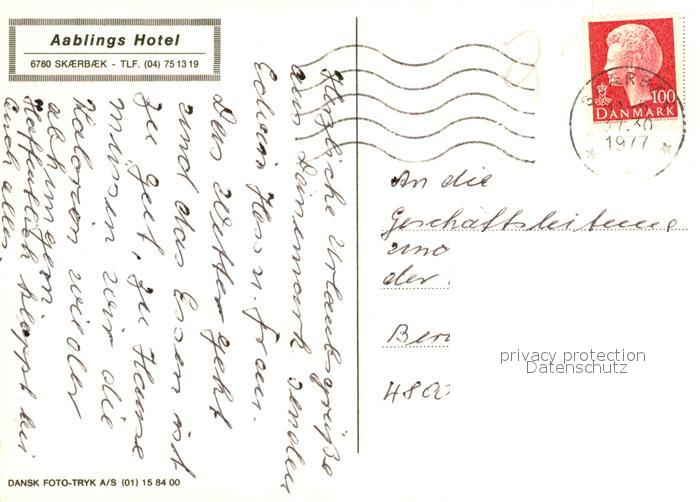 Aablings Hotel
6780 SKÆRBÆK - TLF. (04) 75 13 19
Herzliche Urlaubsgrüße
aus Dänemark senden
Edwin Hass u. Frau.
Das Wetter geht
und das Essen ist
zu gut, zu Hause
müssen wir die
Kalorien wieder
abhungern
Hoffentlich klappt bei
Euch alles.
DANSK FOTO-TRYK A/S (01) 15 84 00
100
DANMARK
1977
An die
Geschäftsleitung
und
der
4800
privacy protection
Datenschutz